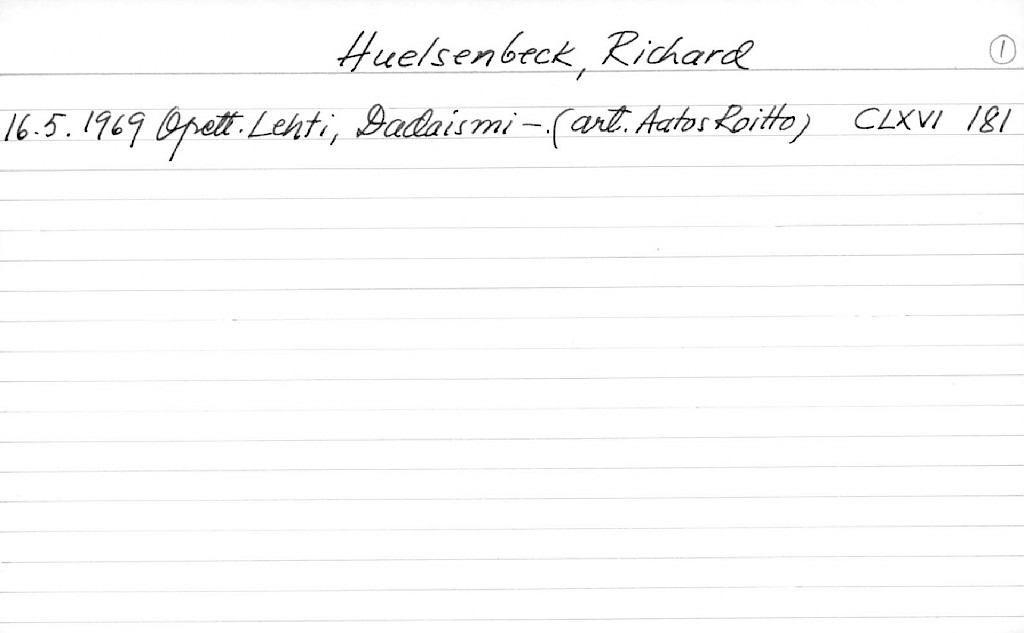 Huelsenbeck, Richard 1
16.5.1969 Opett. Lehti, Dadaismi –. (art. Aatos Roitto) CLXVI 181